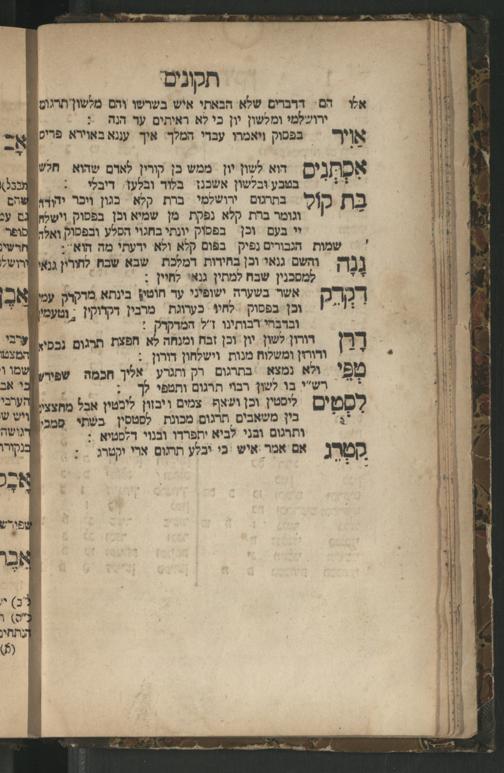 תקונים
אלו הם הדברים שלא הבאתי איש בשרשו והם מלשון תרגום
ירושלמי ומלשון יון כי לא ראיתים עד הנה :
אויר בפסוק ויאמרו עבדי המלך איך עננא באוירא פריס
אסתנים הוא לשון יון ממש כן קורין לאדם שהוא חלש
בטבע ובלשון אשכנז בלוד ובלעז דיבלי :
בת קול בתרגום ירושלמי ברת קלא כגון ויכר יהודה
וגומר ברת קלא נפקת מן שמיא וכן בפסוק וישלח
יי בעם וכן בפסוק יונתי בחגוי הסלע ובפסוק ואלה
שמות הגבורים נפיק בפום קלא ולא ידעתי מה הוא :
גנה והשם גנאי וכן בחידות דמלכת שבא שבח לחורין גנאי
למסכנין שבח למתין גנא לחיין :
דקדק אשר בשערה ישופיני עד חוטי בינתא מדקדק עמי
וכן בפסוק לחיו כערוגת מרבין דקדוקין וטעמין
ובדברי רבותינו ז"ל המדקדק :
דרן דורון לשון יון וכן זבח ומנחה לא חפצת תרגום נכסיא
ודורון ומשלוח מנות וישלחון דורון :
טפי ולא נמצא בתרגום רק ותגרע אליך חכמה שפירש
רש"י בו לשון רבוי תרגום ותטפי לך :
לסטים ליסטין וכן ושאף צמים ויבזון ליסטין אבל מחצצים
בין משאבים תרגום מכונת לסטסין בשתי סמכי
ותרגום ובני לביא יתפרדו ובנוי דלסטיא :
קטרג אם אמר איש כי יבלע תרגום ארי יקטרג :